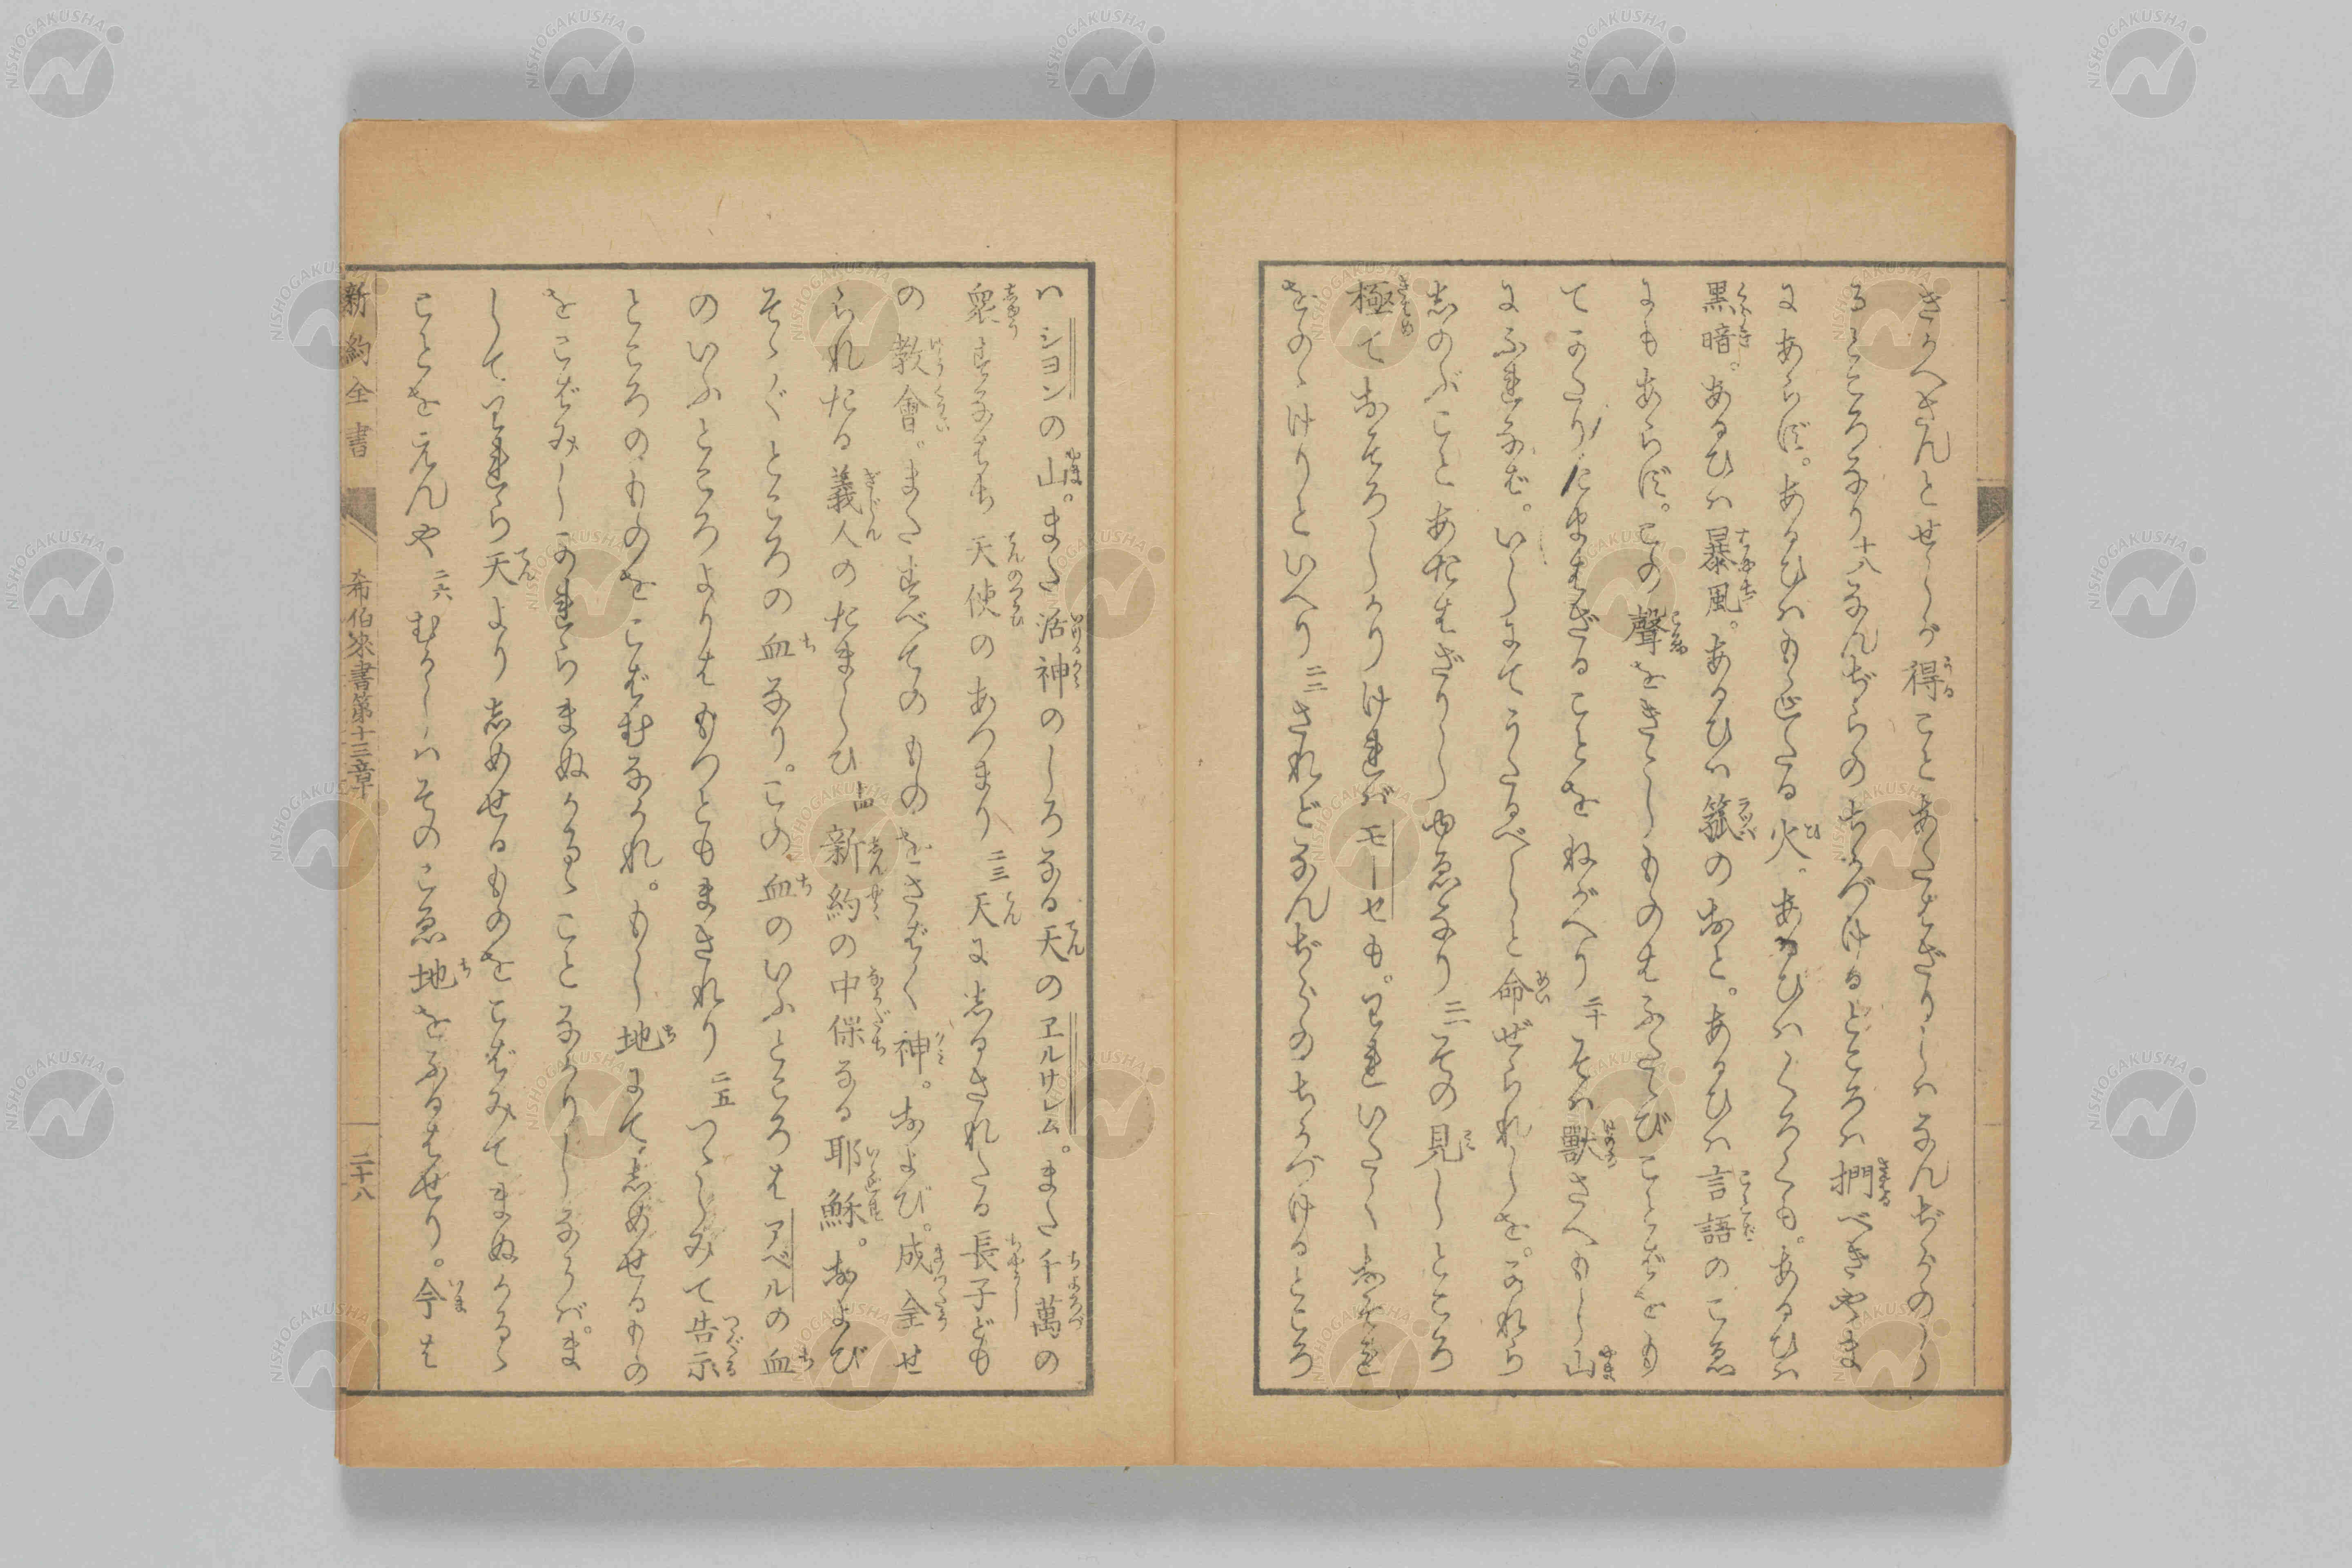 きかへさんとせしが得ことあたはざりしハなんぢらのし
るところなり十八なんぢらのちかづけるところハ捫べきやま
にあらず。あるひハもえたる火。あるひハくろくも。あるひハ
黒暗。あるひハ暴風。あるひハ箛のおと。あるひハ言語のこゑ
にもあらず。この聲をきゝしものはふたゝびことばをも
てかたりたまはざることをねがへり二十そハ獸さへもし山
にふれなむ。いしにてうたるべしと命ぜられしを。かれら
しのぶことあたはざりしゆゑなり二一その見しところ
極ておそろしかりけれバモーセも。われいたくおそれ
をのゝけりといへり二二されどなんぢらのちかづけるところ
ハシヨンの山。また活神のしろなる天のヱルサレム。また千萬の
衆すなはち天使のあつまり二三天にしるされたる長子ども
の教會。またすべてのものをさばく神。および。成全せ
られたる義人のたましひ二四新約の中保なる耶穌。および
そゝぐところの血なり。この血のいふところはアベルの血
のいふところよりはもつともまされり二五つゝしみて告示
ところのものをこばむなかれ。もし地にて、しめせるもの
をこばみしかれらまぬかるゝことなかりしならバ。ま
して、われら天よりしめせるものをこばみてまぬかるゝ
ことをえんや二六むかしハそのこゑ地をふるはせり。今は
新約全書 希伯來書第十三章 二十八
NISHOGAKUSHA